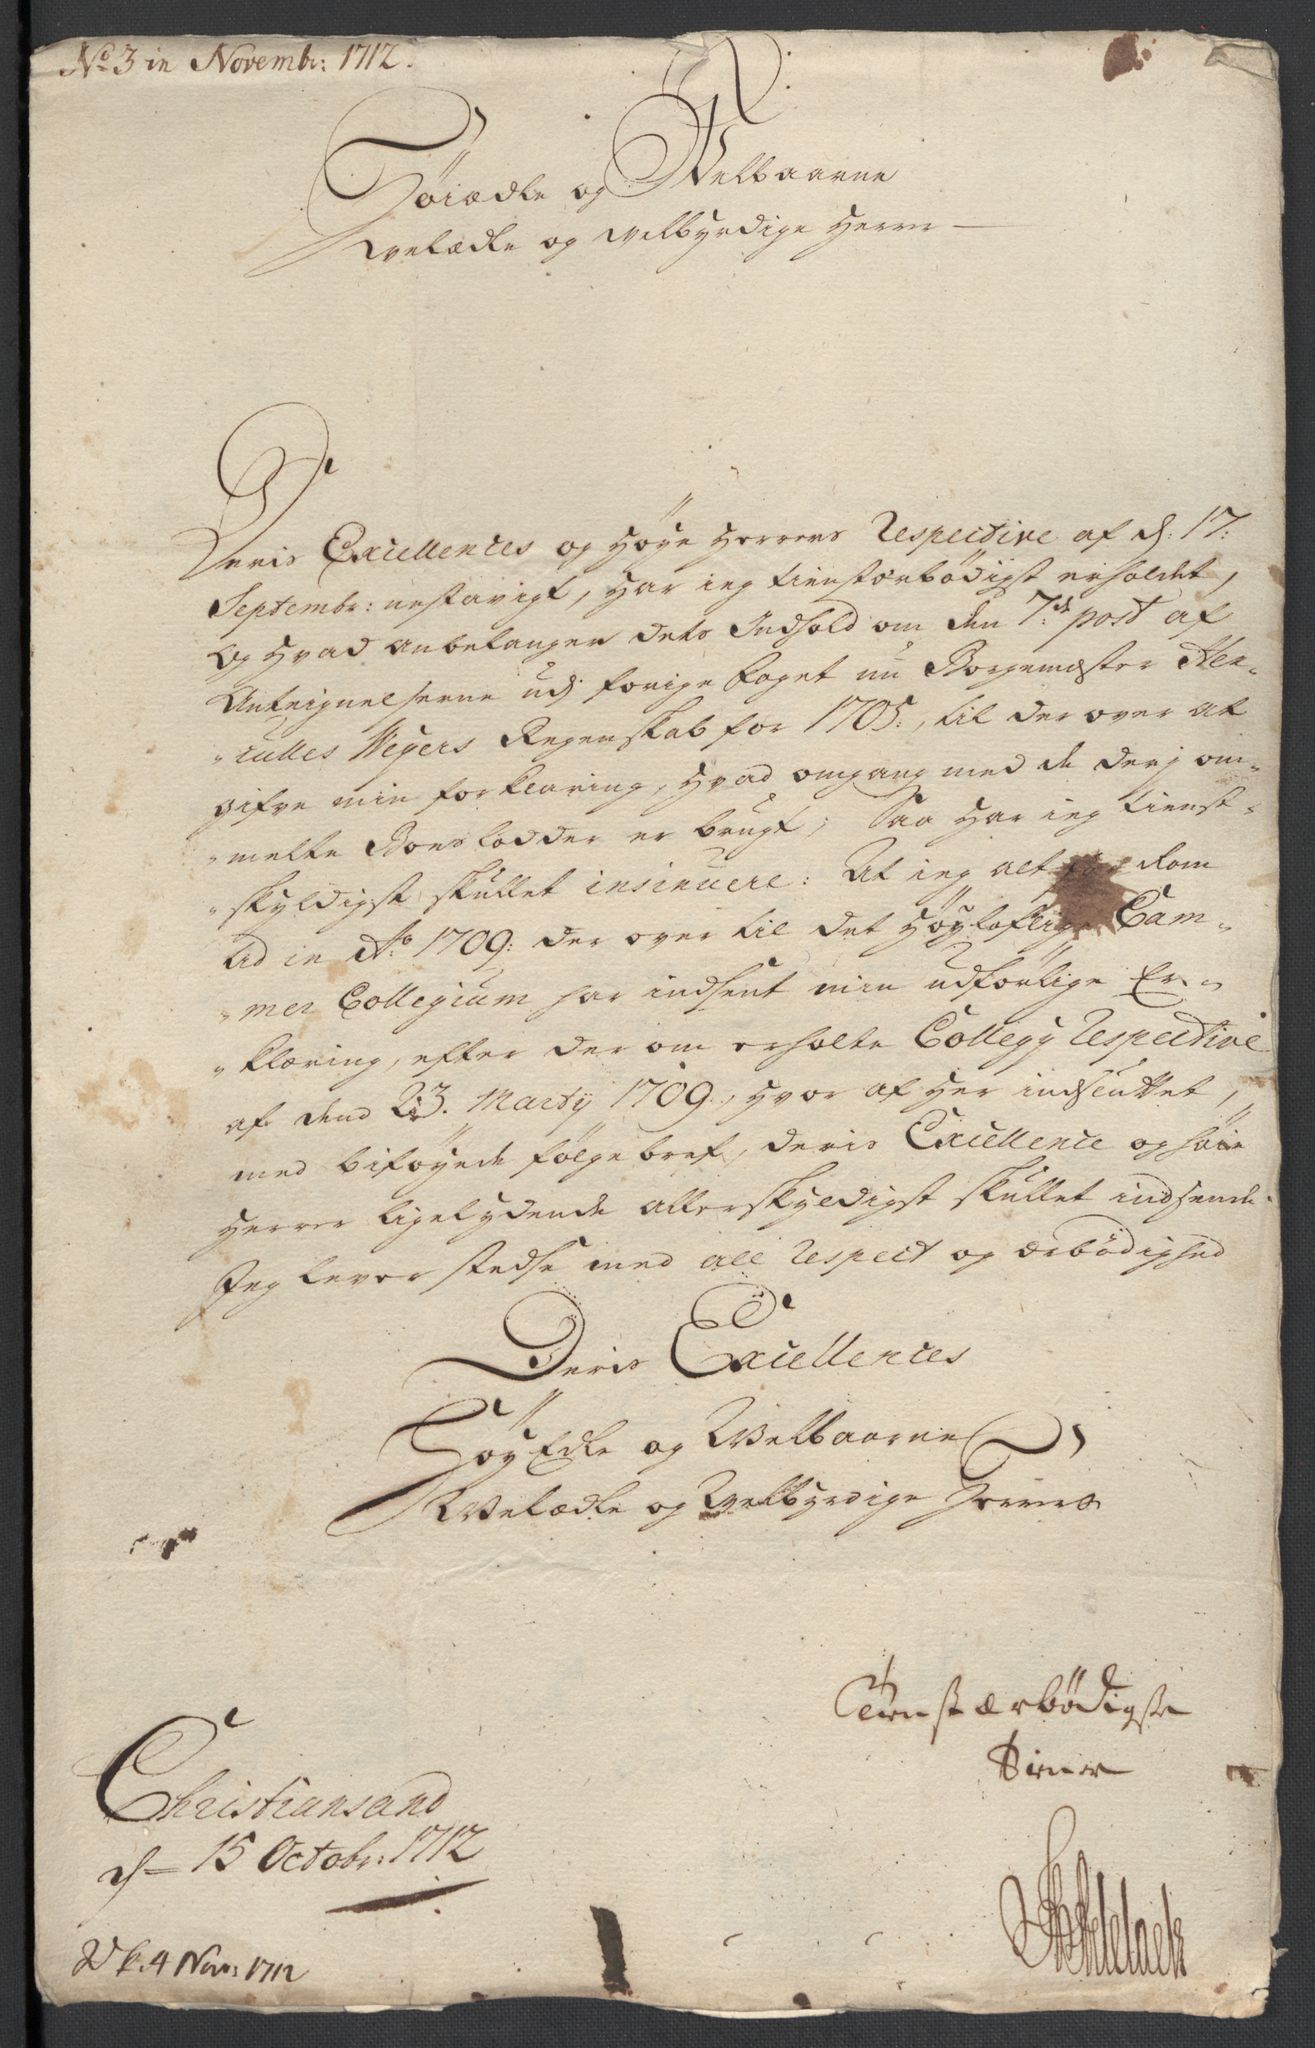 No 3 in Novembr: 1712.
Høiædle og Welbaarne
Welædle og velbyrdige Herrer
Deris Excellences og Høye Herrers Respective af d: 17:
Septembr: nestavigt, har ieg tienstærbödigst erholdet,
Og hvad anbelanger dets Indhold om den 7de post af
Antegnelserne udj forige foget nu Borgemester Her-
-culles Weyers Regenskab for 1705:, til der over at
gifve min forklaring, hvad omgang med de derj om-
-melte Boeslodder er brugt; Saa har ieg tienst-
-skyldigst skullet insinuere: At ieg alt for dom
tid in Ao 1709: der over til det höyloflige Cam-
-mer Collegium har indsent min udförlige Er-
-klæring, efter der om erholte Collegij Respective
af dend 23. Martij 1709, hvor af her indsluttet,
med bifoyede fölgebref, deris Excellence og höie
Herrer ligelydende allerskyldigst skullet indsende.
Jeg lever stedse med all respect og ærbödighed
Deris Excellences
Höy Edle og Welbaarne
Welædle og Welbyrdige Herrers
Tienstærbödigste
tiener
Christiansand
d 15 Octobr: 1712
4 Nov: 1712